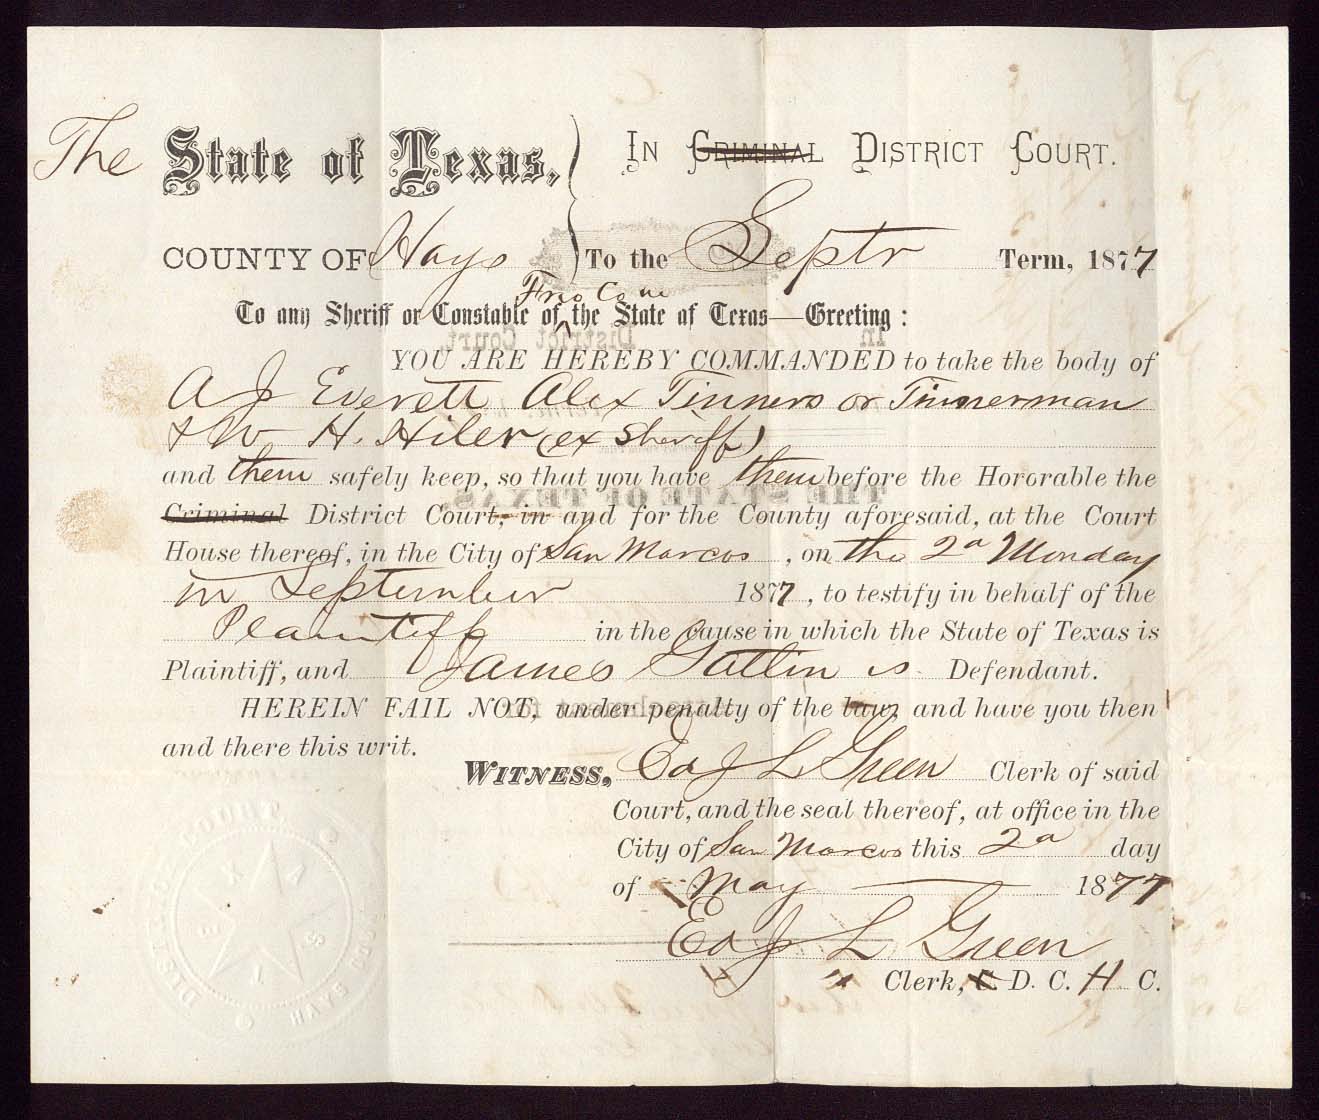 The State of Texas,
In Criminal District Court.
County of Hays
To the Septr Term, 1877
Frio Co
To any Sheriff or Constable of the State of Texas—Greeting:
YOU ARE HEREBY COMMANDED to take the body of
A J Everett Alex Tinners or Tinnerman
& W H. Hiler (ex Sheriff)
and them safely keep, so that you have them before the Honorable the
Criminal District Court, in and for the County aforesaid, at the Court
House thereof, in the City of San Marcos, on the 2d Monday
in September 1877, to testify in behalf of the
Plaintiff in the cause in which the State of Texas is
Plaintiff, and James Gatlin is Defendant.
HEREIN FAIL NOT, under penalty of the law, and have you then
and there this writ.
Witness, Ed J L Green Clerk of said
Court, and the seal thereof, at office in the
City of San Marcos this 2d day
of May 1877
Ed J L Green
Clerk, C. D. C. H C.
DISTRICT COURT
TEXAS
HAYS CO